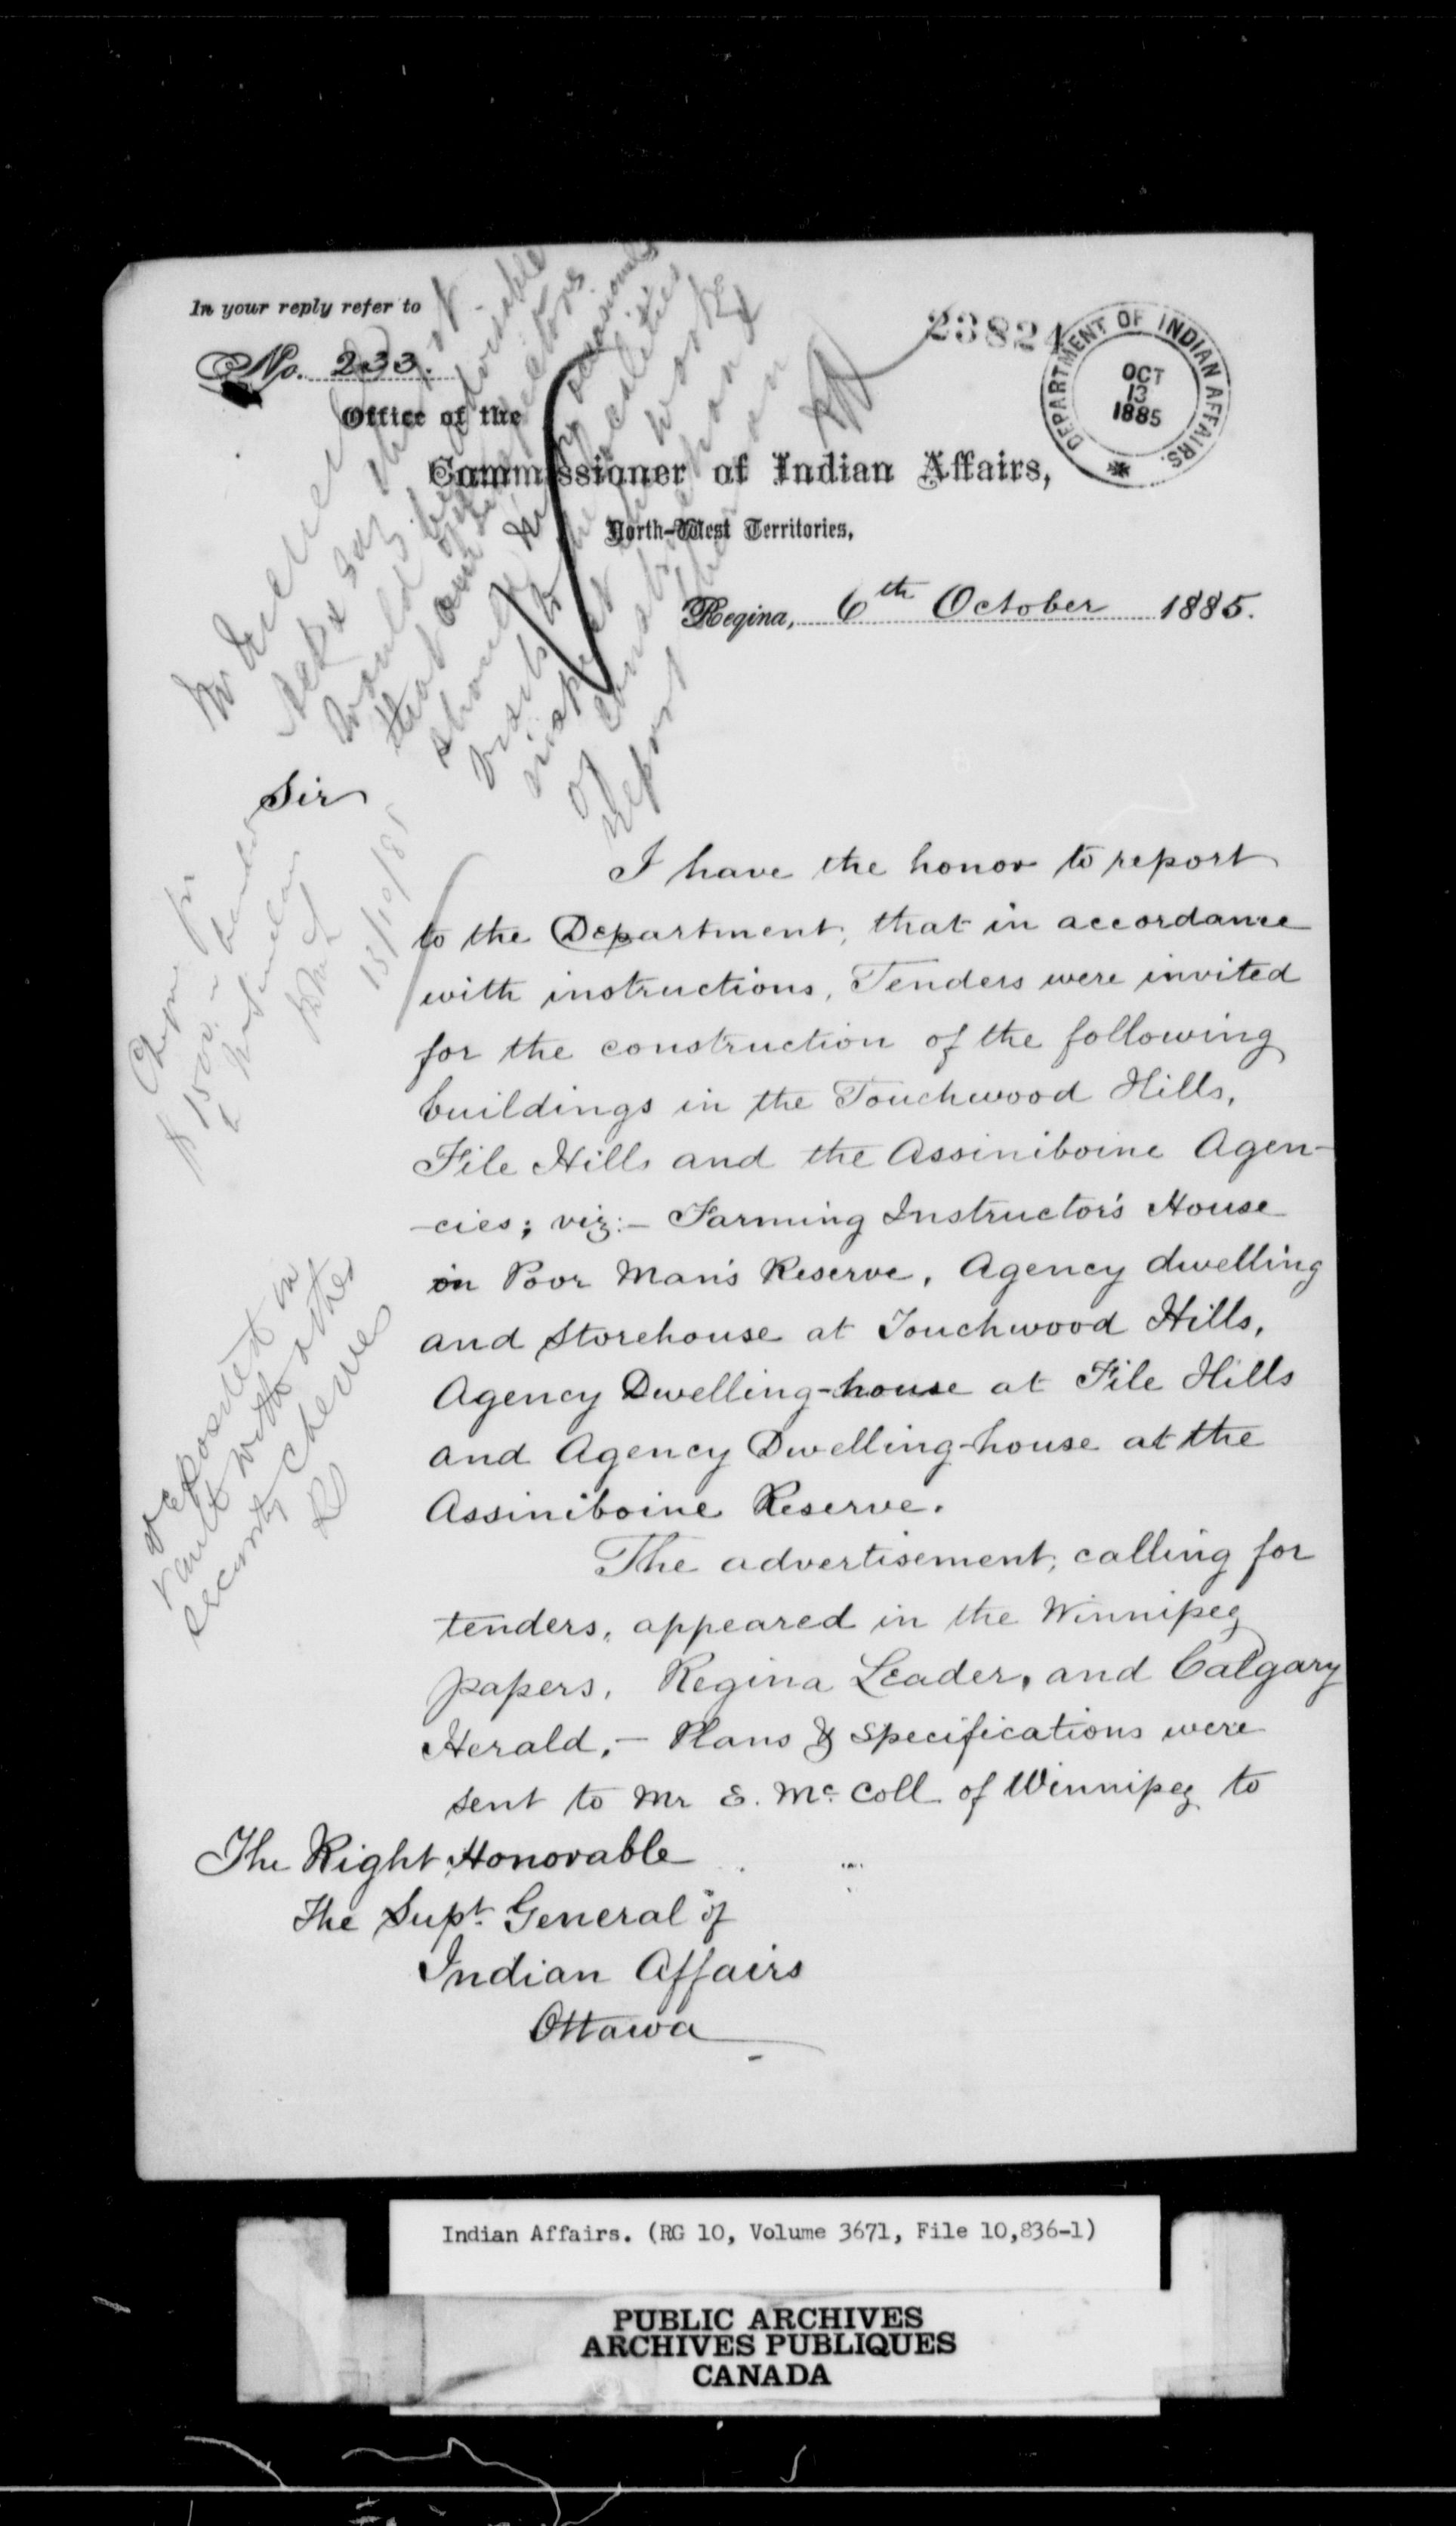 In your reply refer to
No. 233.
23824
DEPARTMENT OF INDIAN AFFAIRS.
OCT
13
1885
Office of the
Commissioner of Indian Affairs,
North-West Territories,
Regina, 6th October 1885.
say
would be advisable
that
should
visits to the localities
inspect the work
of construction and
report thereon
Sir
13/10/85
I have the honor to report
to the Department, that in accordance
with instructions, Tenders were invited
for the construction of the following
buildings in the Touchwood Hills,
File Hills and the Assiniboine Agen-
-cies; viz:- Farming Instructor's House
on Poor Man's Reserve, Agency dwelling
and Storehouse at Touchwood Hills,
Agency Dwelling-house at File Hills
and Agency Dwelling-house at the
Assiniboine Reserve.
Deposited in
vault with other
security cheques
The advertisement, calling for
tenders, appeared in the Winnipeg
papers, Regina Leader, and Calgary
Herald,- Plans & Specifications were
sent to Mr E. Mc.Coll of Winnipeg to
The Right Honorable
The Supt. General of
Indian Affairs
Ottawa
Indian Affairs. (RG 10, Volume 3671, File 10,836-1)
PUBLIC ARCHIVES
ARCHIVES PUBLIQUES
CANADA